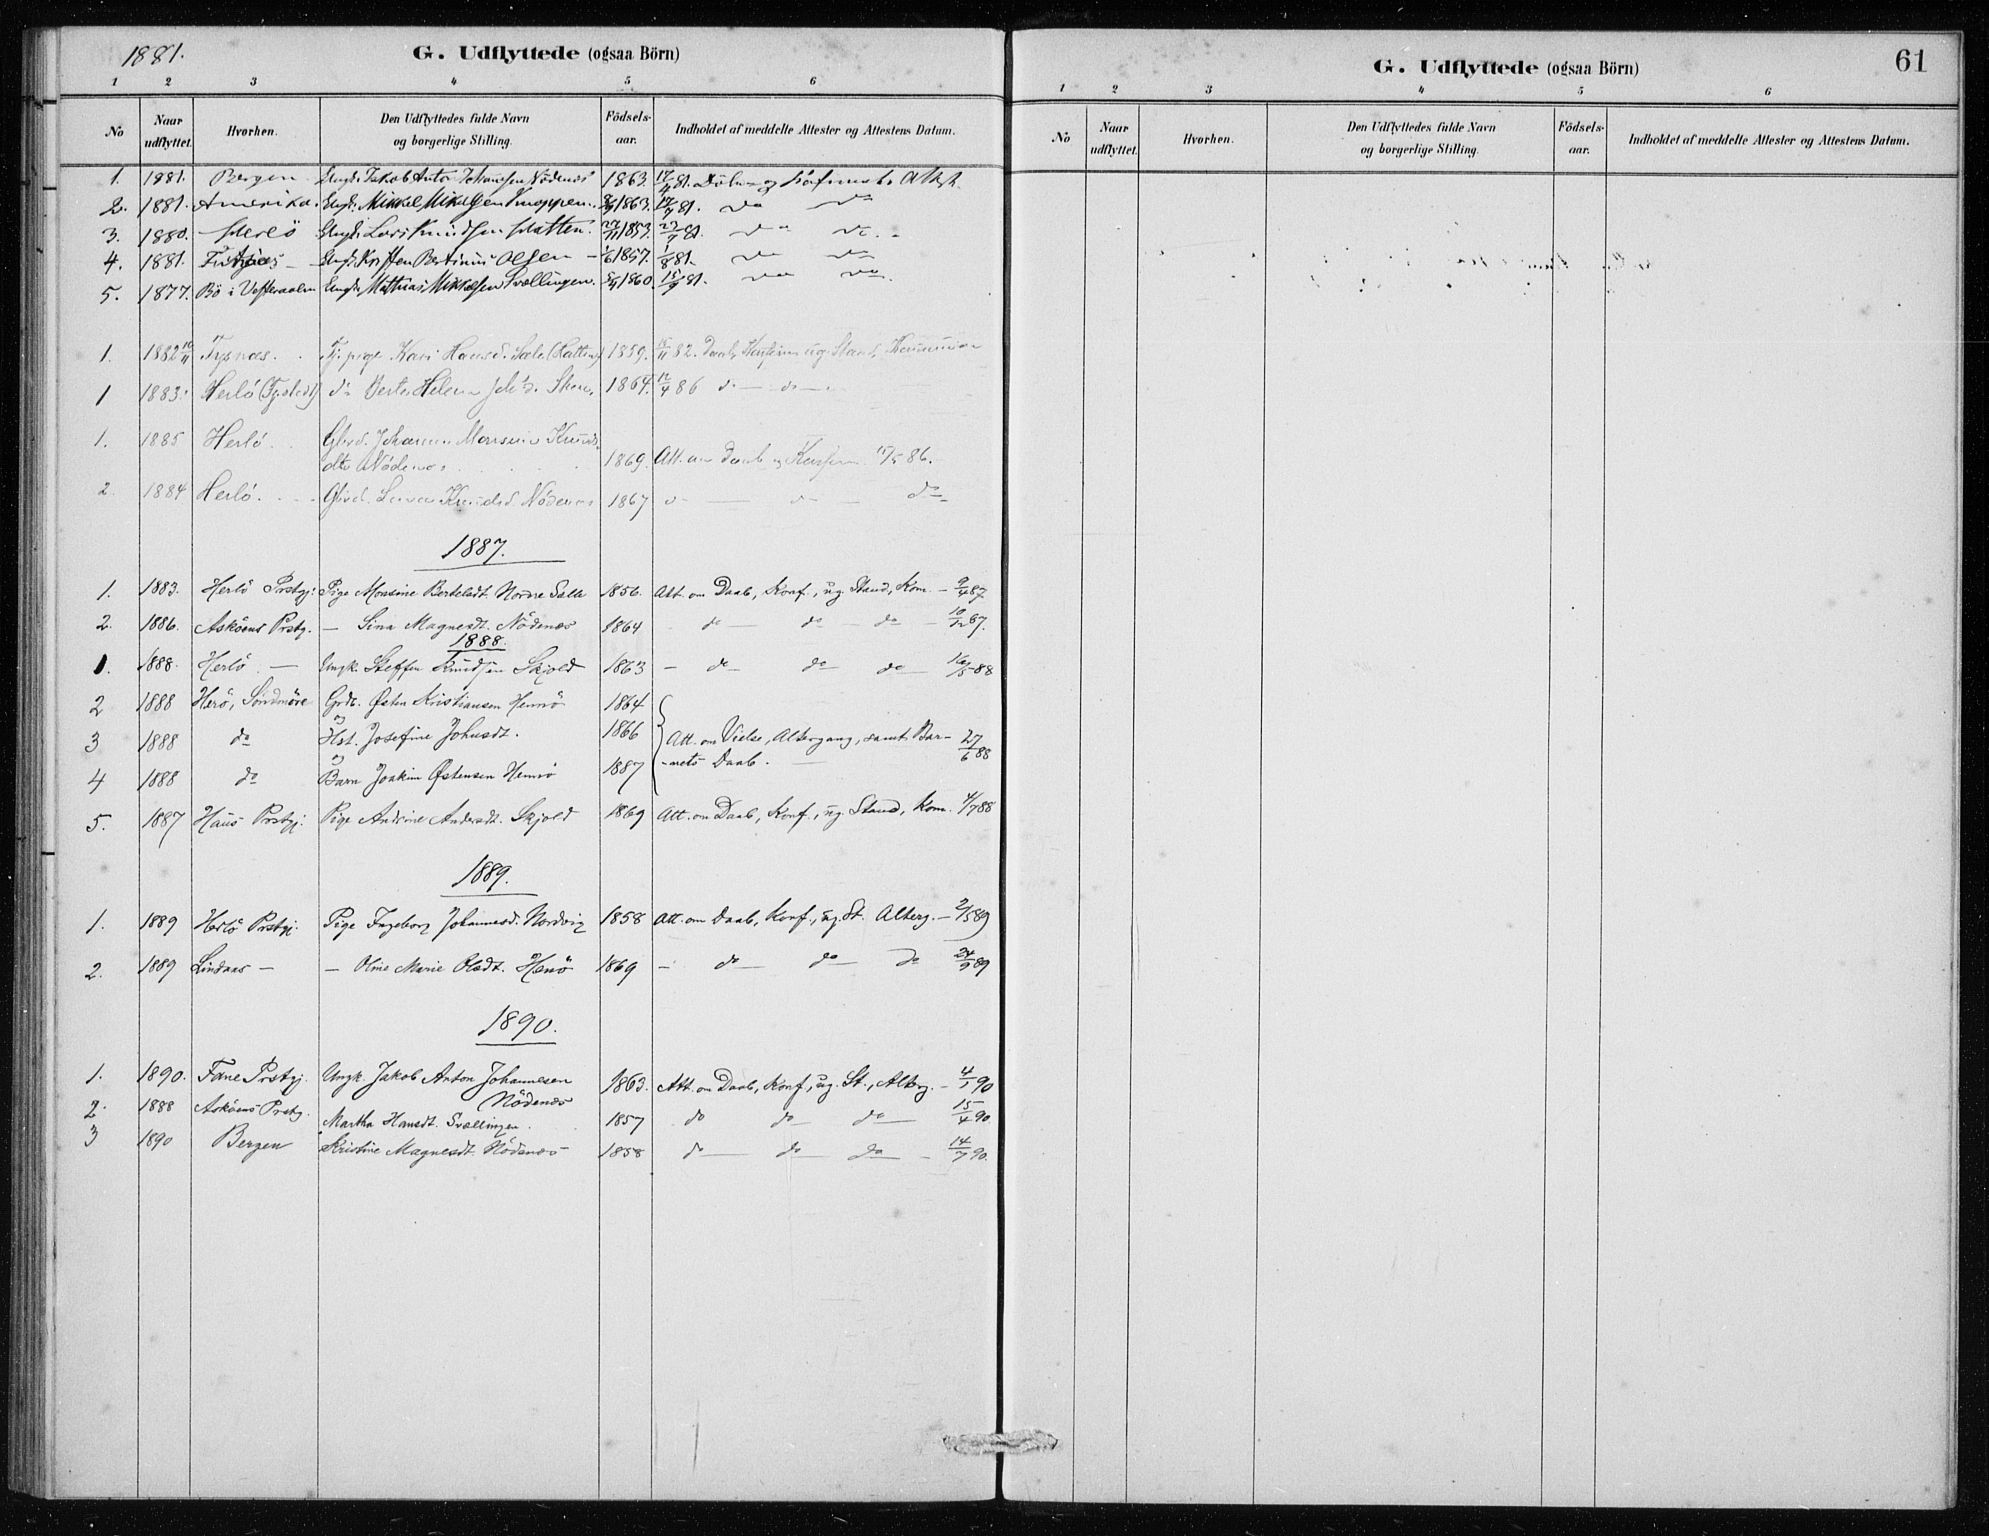 1881.
G. Udflyttede (ogsaa Börn)
1 2 3 4 5 6
No Naar udflyttet. Hvorhen. Den Udflyttedes fulde Navn og borgerlige Stilling. Födsels-aar. Indholdet af meddelte Attester og Attestens Datum.
1. 1881. Bergen Ungk. Jakob Anton Johannesen Nödenæs 1863. 17/4 81. Döbe- og Attest
2. 1881. Amerika. Ungk. Mikkel Mikkelsen 1863. 17/7 81. do do
3. 1880. Herlö Ungk. Lars Knudsen 27/11 1853. 23/7 81. do do
4. 1881. Ungk. Kristen Bertinius Olsen 1/6 1857. 1/8 81. do do
5. 1877. Bö i Vesteraalen Ungk. Mathias Mikkelsen Svællingen. 1860. 15/9 81. do do
1. 1882 Tysnæs. Tj. pige Kari Hansd. 1859. 82. Daab, Konfirm. ug. Stand, Kommunion
1 1883. Herlö do Helene 1864. 12/4 86 do do
1. 1885 Herlö. Johanne Monsine Knuds-
dtr Nödenæs 1869. Att. om Daab og Konfirm. 17/5 86.
2. 1884 Herlö. Knudsd. Nödenæs 1867 do do do
1887.
1. 1883. Herlö Prstgj. Pige Monsine Bertelsdt. Nordre Sæle 1856. Att. om Daab, Konf., ug. Stand, Kom. - 9/4 87
2. 1886. Asköens Prstg. - Sina Magnesdt. Nödenæs 1864 do do - do - 10/12 87.
1888.
1. 1888. Herlö - Ungk. Steffen Knudsen Skjold 1863 - do do do 16/5 88
2 1888 Herö, Söndmöre Grdb. Østen Kristiansen Hennö 1864
3 1888 do Hst. Josefine Johnsdt. 1866 Att. om Vielse, Altergang, samt Bar-
4 1888 do Barn Joakim Østensen Hennö 1887 nets Daab. 27/6 88
5. 1887 Haus Prstgj. Pige Andrine Andersdt. Skjold 1869 Att. om Daab, Konf., ug. Stand, Kom. 4/7 88
1889.
1. 1889 Herlö Prstgj. Pige Ingeborg Johannesd. Nordvig 1858 Att. om Daab, Konf., ug. St. Alterg. - 2/5 89
2. 1889 Lindaas - - Oline Marie Olsdt. Henö 1869 - do do do 24/9 89
1890.
1. 1890. Fane Prstgj. Ungk. Jakob Anton Johannesen Nödenæs 1863. Att. om Daab, Konf., ug. St., Alterg. - 4/1 90
2. 1888 Asköens Prstg. Martha Hansdt. Svællingen 1857 do do do 15/4 90
3 1890 Bergen Kristine Magnesdt. Nödenæs 1858 do do do - 14/7 90.
61
G. Udflyttede (ogsaa Börn)
1 2 3 4 5 6
No Naar udflyttet. Hvorhen. Den Udflyttedes fulde Navn og borgerlige Stilling. Födsels-aar. Indholdet af meddelte Attester og Attestens Datum.